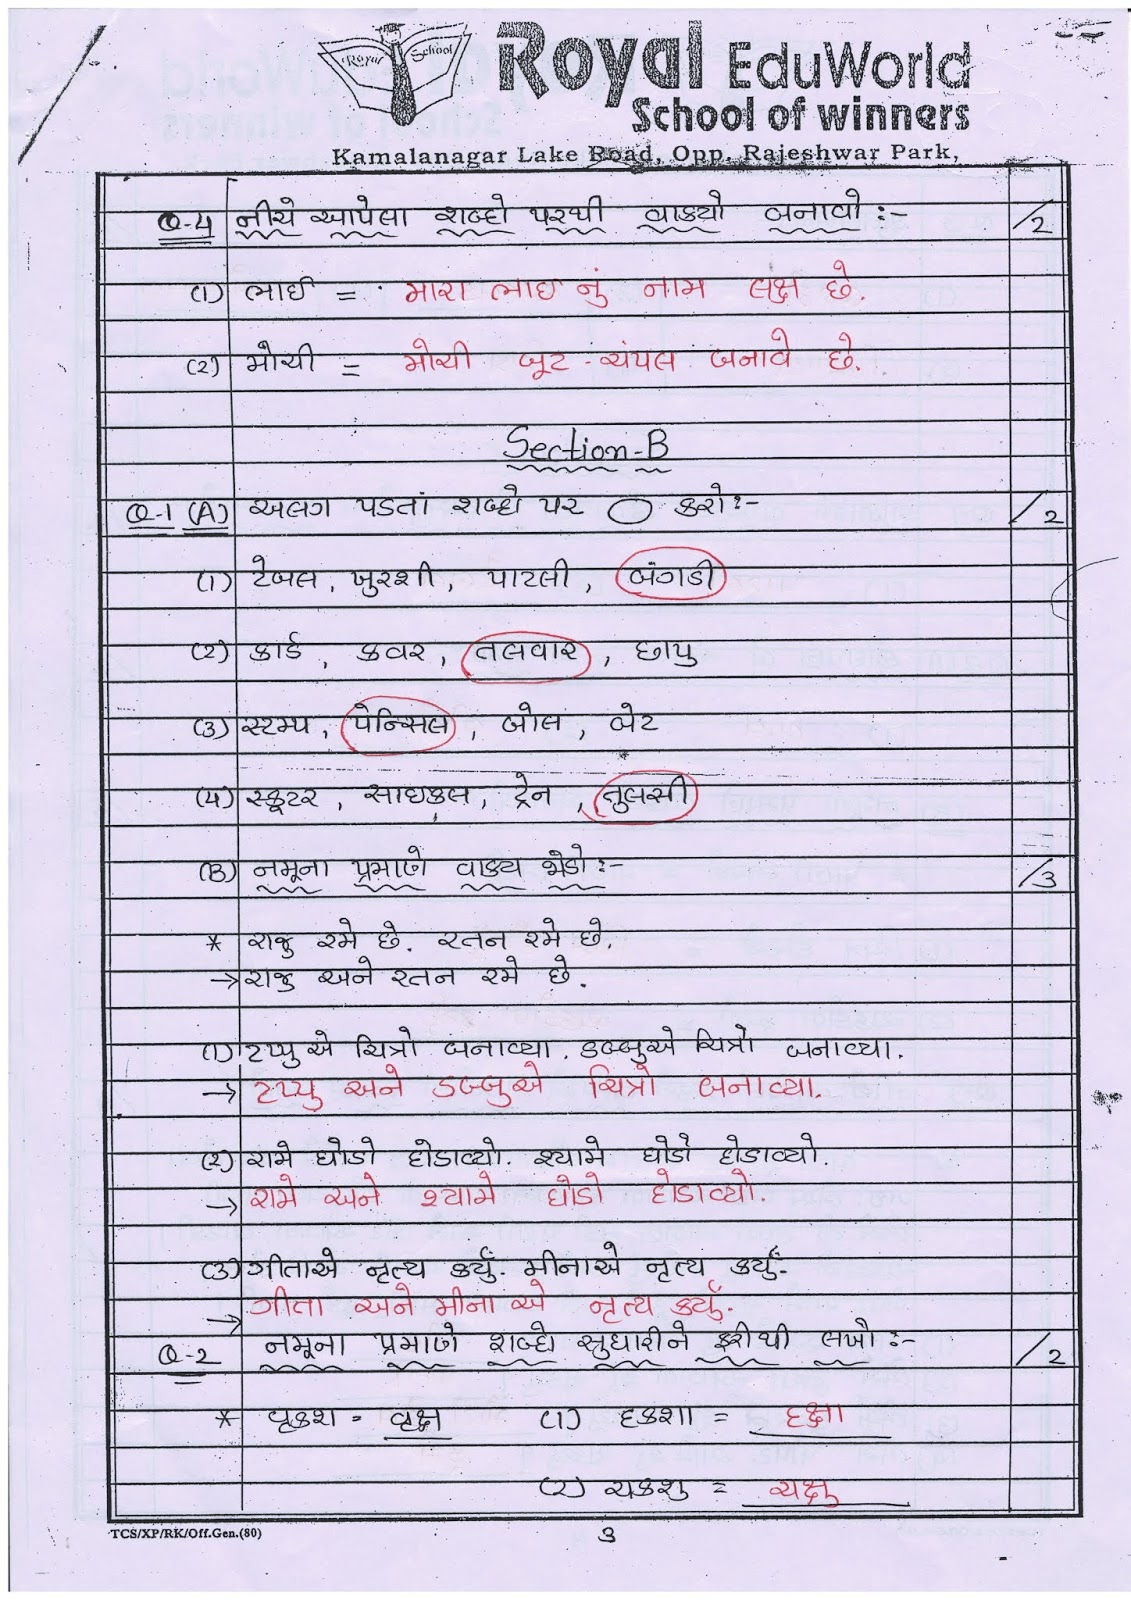 Royal School
Royal EduWorld
School of winners
Kamalanagar Lake Road, Opp. Rajeshwar Park,
Q-4 નીચે આપેલા શબ્દો પરથી વાક્યો બનાવો :- /2
(1) ભાઈ = મારા ભાઈ નું નામ લક્ષ છે.
(2) મોચી = મોચી બૂટ-ચંપલ બનાવે છે.
Section-B
Q-1 (A) અલગ પડતાં શબ્દો પર ◯ કરો:- /2
(1) ટેબલ, ખુરશી, પાટલી, બંગડી
(2) કાર્ડ, કવર, તલવાર, છાપુ
(3) સ્ટમ્પ, પેન્સિલ, બોલ, બેટ
(૪) સ્કૂટર, સાઇકલ, ટ્રેન, તુલસી
(B) નમૂના પ્રમાણે વાક્ય જોડો:- /3
* રાજુ રમે છે. રતન રમે છે.
→ રાજુ અને રતન રમે છે.
(૧) ટપ્પુ એ ચિત્રો બનાવ્યા. ડબ્બુએ ચિત્રો બનાવ્યા.
→ ટપ્પુ અને ડબ્બુએ ચિત્રો બનાવ્યા.
(૨) રામે ઘોડો દોડાવ્યો. શ્યામે ઘોડો દોડાવ્યો.
→ રામે અને શ્યામે ઘોડો દોડાવ્યો.
(૩) ગીતાએ નૃત્ય કર્યું. મીનાએ નૃત્ય કર્યું.
→ ગીતા અને મીના એ નૃત્ય કર્યું.
Q-2 નમૂના પ્રમાણે શબ્દો સુધારીને ફરીથી લખો :- /2
* વૃકશ = વૃક્ષ (1) દકશા = દક્ષા
(2) ચકશુ = ચક્ષુ
TCS/XP/RK/Off.Gen.(80)
3